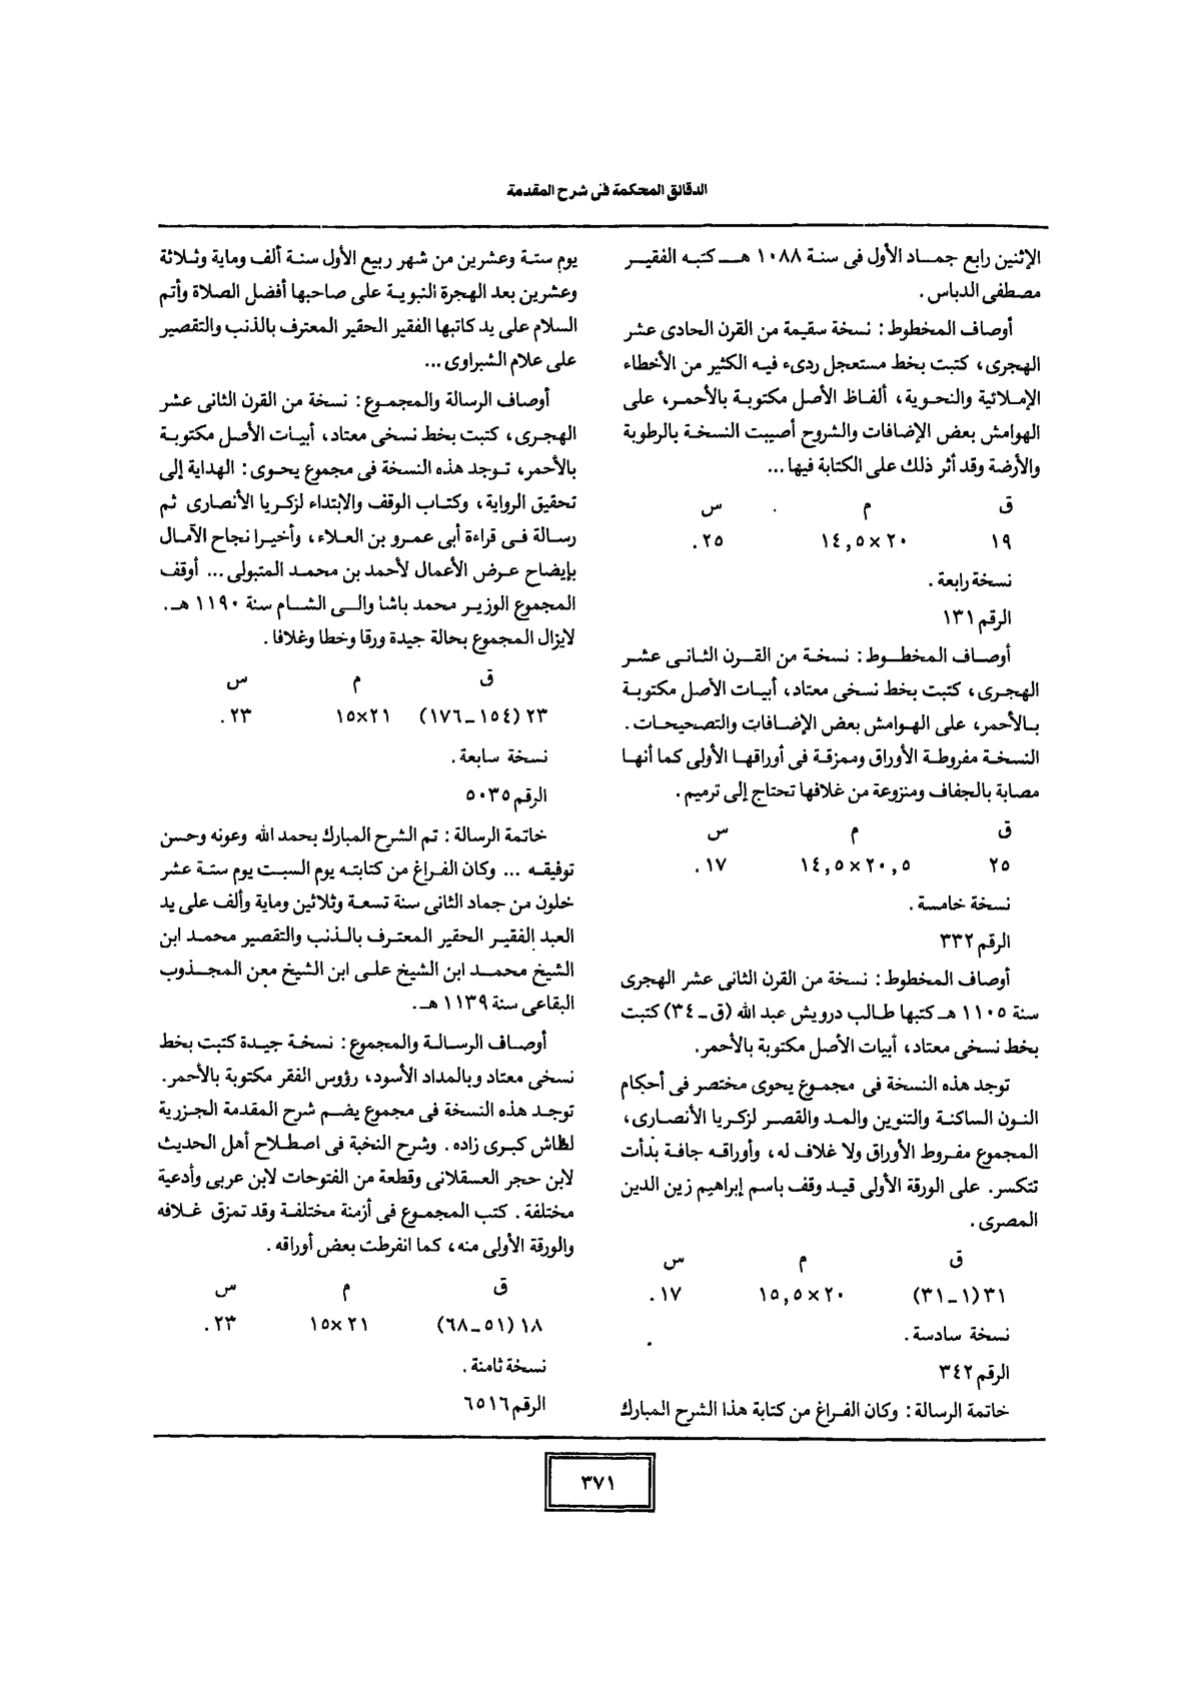 الدقائق المحكمة فى شرح المقدمة
الإثنين رابع جمـــاد الأول فى سنـة ١٠٨٨ هــــ كتبـه الفقيـــر
مصطفى الدباس .
أوصاف المخطوط : نسخة سقيمة من القرن الحادى عشر
الهجرى، كتبت بخط مستعجل ردىء فيـه الكثير من الأخطاء
الإمـلائية والنحـوية، ألفـاظ الأصل مكتوبـة بالأحمـر، على
الهوامش بعض الإضافات والشروح أصيبت النسخة بالرطوبة
والأرضة وقد أثر ذلك على الكتابة فيها ...
ق م س
١٩ ٢٠×١٤,٥ ٢٥ .
نسخة رابعة .
الرقم ١٣١
أوصـاف المخطــوط : نسخـة من القــرن الثـانـى عشـر
الهجـرى، كتبت بخط نسخى معتاد، أبيـات الأصل مكتوبـة
بـالأحمر، على الهـوامش بعض الإضـافـات والتصحيحـات .
النسخـة مفروطـة الأوراق وممزقـة فى أوراقهـا الأولى كما أنهـا
مصابة بالجفاف ومنزوعة من غلافها تحتاج إلى ترميم .
ق م س
٢٥ ٢٠,٥×١٤,٥ ١٧ .
نسخة خامسة .
الرقم ٣٣٢
أوصاف المخطوط : نسخة من القرن الثانى عشر الهجرى
سنة ١١٠٥ هـ كتبها طـالب درويش عبد الله (ق ـ ٣٤) كتبت
بخط نسخى معتاد، أبيات الأصل مكتوبة بالأحمر.
توجد هذه النسخة فى مجمـوع يحوى مختصر فى أحكام
النـون الساكنـة والتنوين والمـد والقصـر لزكـريا الأنصـارى،
المجموع مفـروط الأوراق ولا غلاف له، وأوراقـه جافـة بدأت
تتكسر. على الورقة الأولى قيـد وقف باسم إبراهيم زين الدين
المصرى .
ق م س
٣١ (١ ـ ٣١) ٢٠×١٥,٥ ١٧ .
نسخة سادسة .
الرقم ٣٤٢
خاتمة الرسالة : وكان الفـراغ من كتابة هذا الشرح المبارك
يوم ستـة وعشرين من شهر ربيع الأول سنـة ألف وماية وثـلاثة
وعشرين بعد الهجرة النبويـة على صاحبها أفضل الصلاة وأتم
السلام على يد كاتبها الفقير الحقير المعترف بالذنب والتقصير
على علام الشبراوى ...
أوصاف الرسالة والمجمـوع : نسخة من القرن الثانى عشر
الهجـرى، كتبت بخط نسخى معتاد، أبيـات الأصل مكتوبـة
بالأحمر، تـوجد هذه النسخة فى مجموع يحوى : الهداية إلى
تحقيق الرواية، وكتـاب الوقف والابتداء لزكـريا الأنصارى ثم
رسـالة فـى قراءة أبى عمـرو بن العـلاء، وأخيـرا نجاح الآمال
بإيضاح عـرض الأعمال لأحمد بن محمـد المتبولى ... أوقف
المجموع الوزيـر محمد باشا والـى الشـام سنة ١١٩٠ هـ .
لايزال المجموع بحالة جيدة ورقا وخطا وغلافا .
ق م س
٢٣ (١٥٤ ـ ١٧٦) ٢١×١٥ ٢٣ .
نسخة سابعة .
الرقم ٥٠٣٥
خاتمة الرسالة : تم الشرح المبارك بحمد الله وعونه وحسن
توفيقـه ... وكان الفـراغ من كتابتـه يوم السبـت يوم ستـة عشر
خلون من جماد الثانى سنة تسعـة وثلاثين وماية وألف على يد
العبد الفقيـر الحقير المعتـرف بالـذنب والتقصير محمـد ابن
الشيخ محمــد ابن الشيخ علـى ابن الشيخ معن المجـذوب
البقاعى سنة ١١٣٩ هـ .
أوصـاف الرسـالـة والمجموع : نسخـة جيـدة كتبت بخط
نسخى معتاد وبالمداد الأسود، رؤوس الفقر مكتوبة بالأحمر.
توجـد هذه النسخة فى مجموع يضـم شرح المقدمة الجـزرية
لطاش كبـرى زاده . وشرح النخبة فى اصطـلاح أهل الحديث
لابن حجر العسقلانى وقطعة من الفتوحات لابن عربى وأدعية
مختلفة . كتب المجمـوع فى أزمنة مختلفـة وقد تمزق غـلافه
والورقة الأولى منه، كما انفرطت بعض أوراقه .
ق م س
١٨ (٥١ ـ ٦٨) ٢١×١٥ ٢٣ .
نسخة ثامنة .
الرقم ٦٥١٦
٣٧١